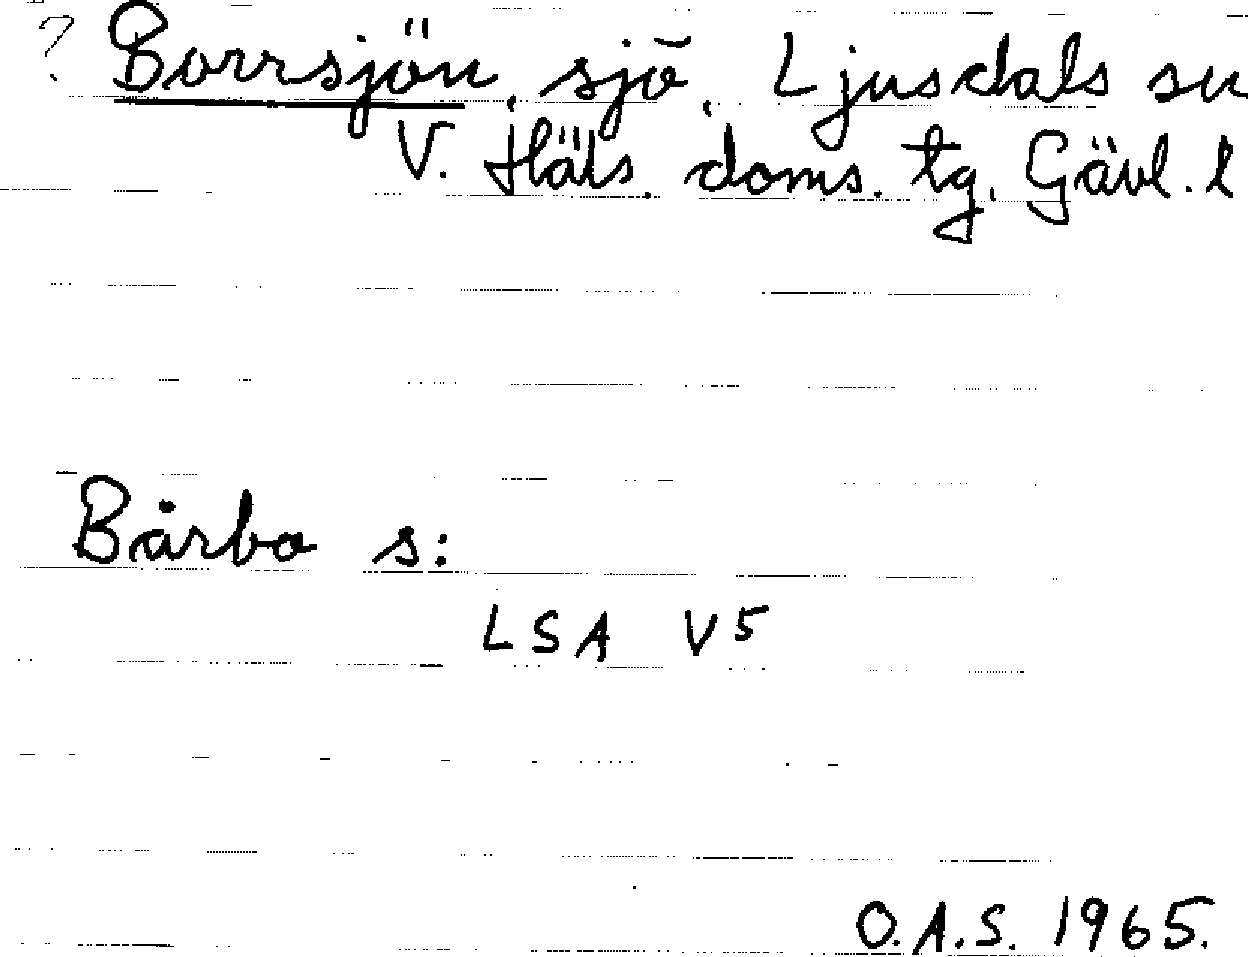 ? Borrsjön, sjö, Ljusdals sn
V. Häls. doms. tg. Gävl. l
Bårbo s:
LSA V5
O.A.S. 1965.